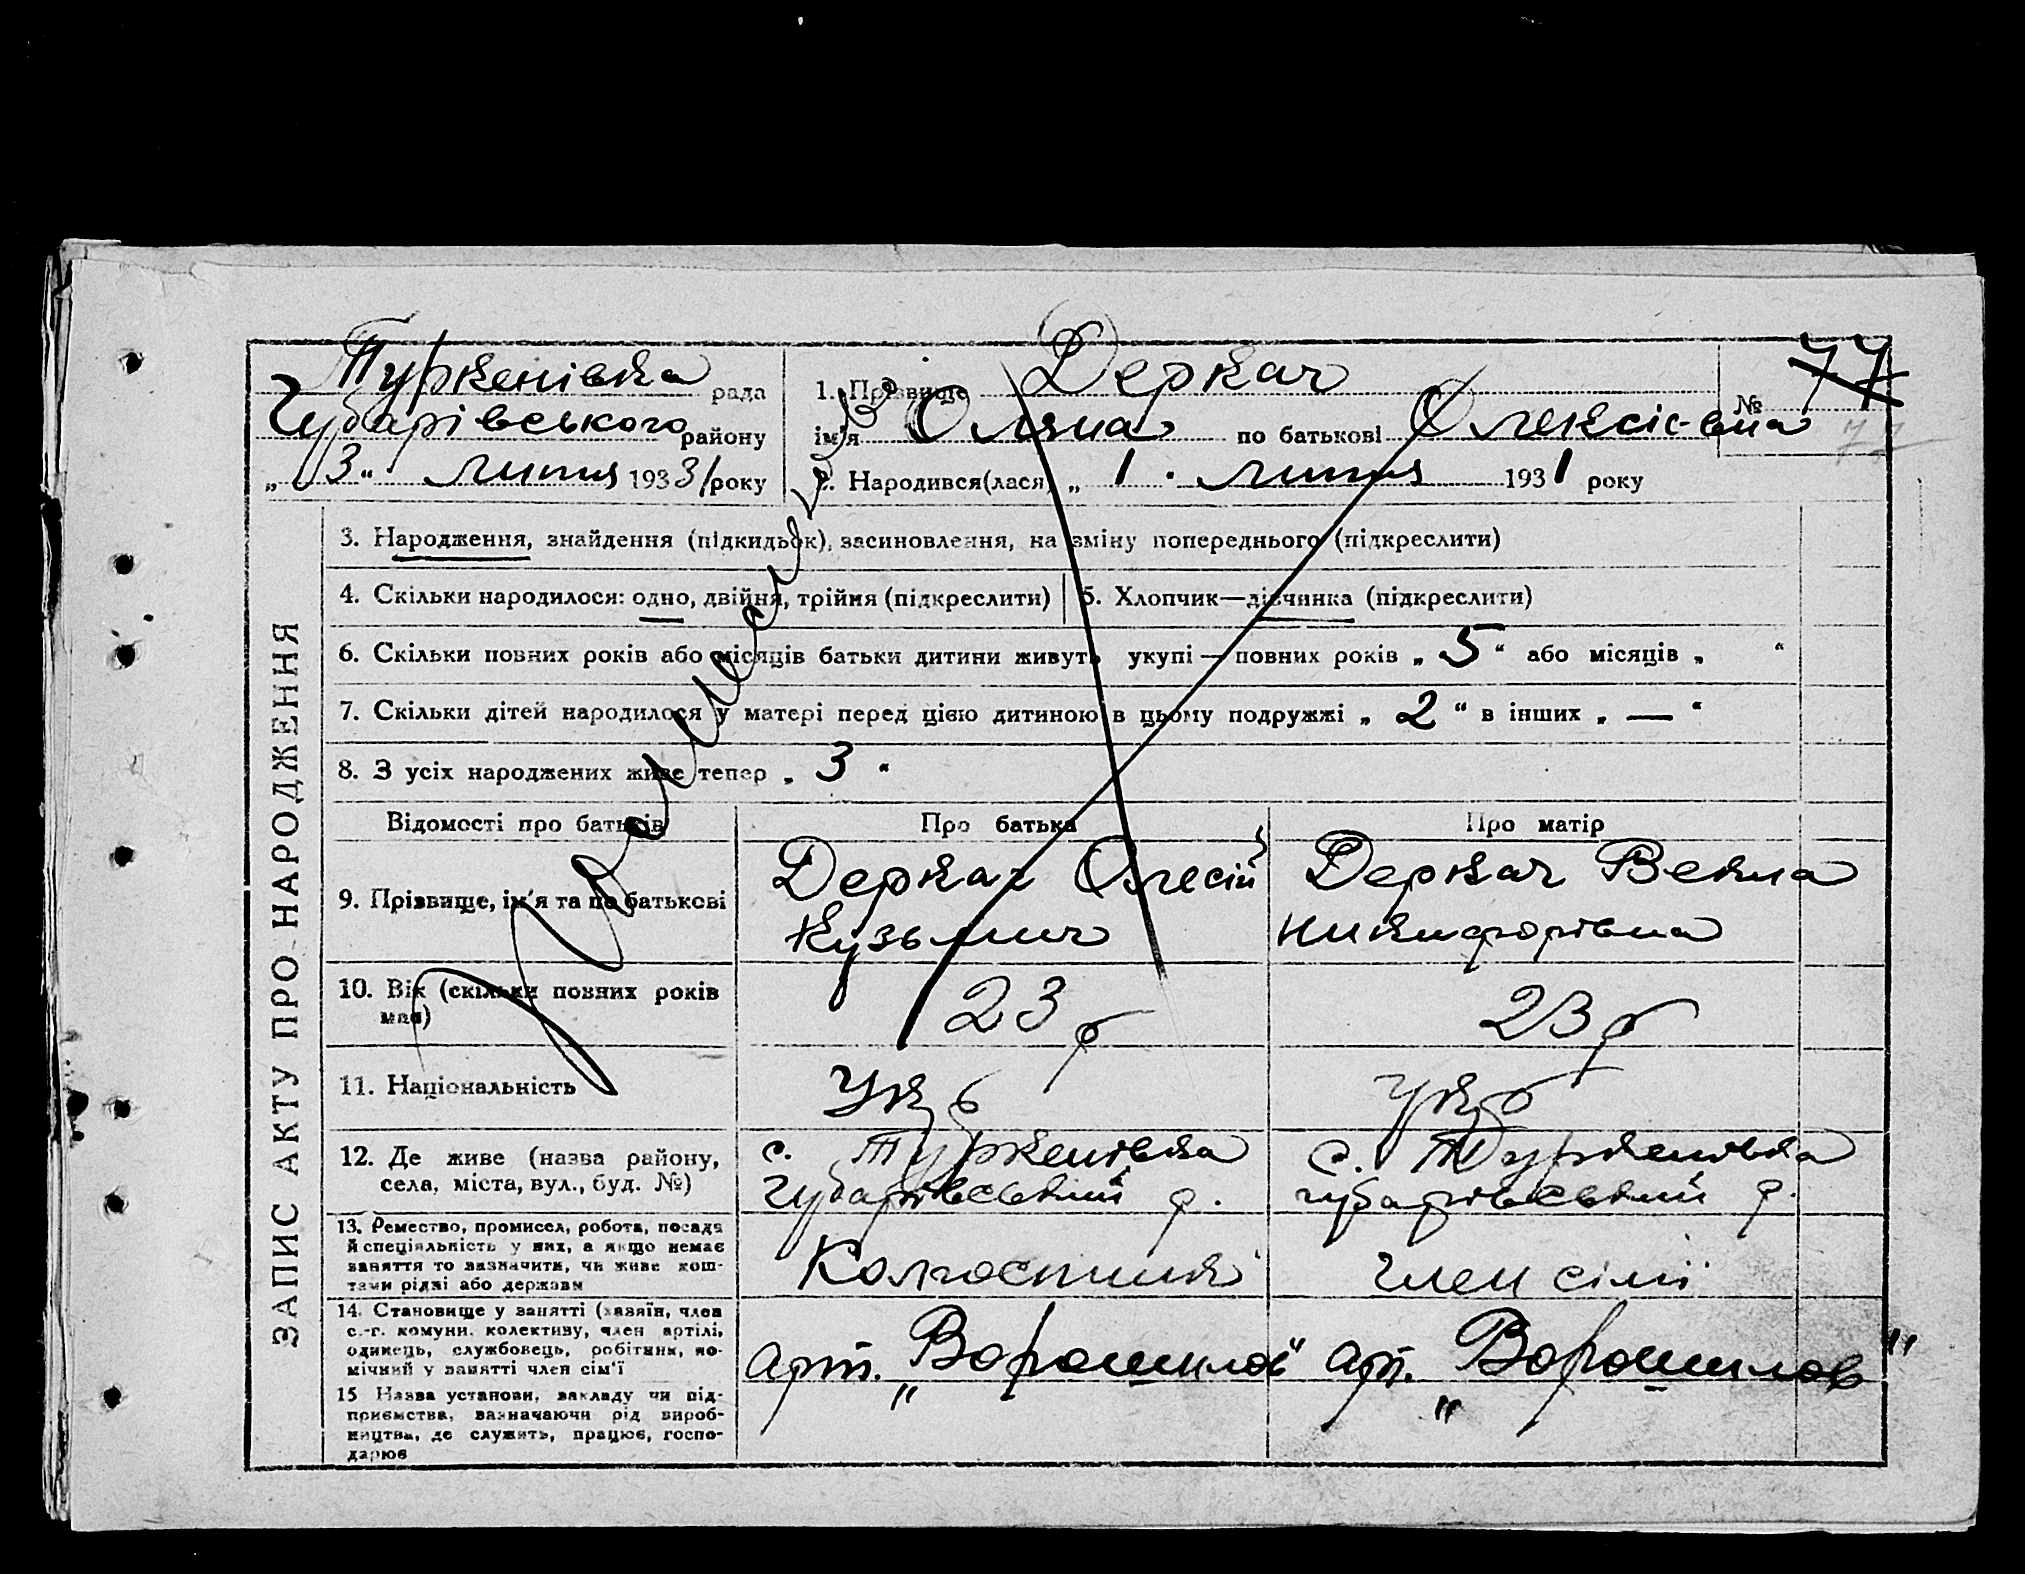 Туркенівка рада
Чубарівського району
„ 3 “ Липня 1931 року
1. Прізвище Деркач
ім'я Оляна по батькові Олексіє-вна
№ 77
77
2. Народився(лася) „ 1 . Липня 1931 року
ЗАПИС АКТУ ПРО НАРОДЖЕННЯ
3. Народження, знайдення (підкидьок), засиновлення, на зміну попереднього (підкреслити)
4. Скільки народилося: одно, двійня, трійня (підкреслити) 5. Хлопчик—дівчинка (підкреслити)
6. Скільки повних років або місяців батьки дитини живуть укупі — повних років „ 5 “ або місяців „ “
7. Скільки дітей народилося у матері перед цією дитиною в цьому подружжі „ 2 “ в інших „ — “
8. З усіх народжених живе тепер „ 3 “
Відомості про батьків Про батька Про матір
9. Прізвище, ім'я та по батькові
Деркач Олесій
Кузьмич
Деркач Векла
Никифорівна
10. Вік (скільки повних років
має)
23 р
23 р
11. Національність
Укр
укр
12. Де живе (назва району,
села, міста, вул., буд. №)
с. Туркенівка
Чубарівський р.
с. Туркенівка
Чубарівський р.
13. Ремество, промисел, робота, посада
й спеціяльність у них, а якщо немає
заняття то зазначити, чи живе кош-
тами рідні або держави
Колгоспник
член сімї
14. Становище у занятті (хазяїн, член
с.-г. комуни, колективу, член артілі,
одинець, службовець, робітник, по-
мічний у занятті член сім'ї
арт. „Ворошилов“
арт. „Ворошилов“
15 Назва установи, закладу чи під-
приємства, зазначаючи рід вироб-
ництва, де служить, працює, госпо-
дарює